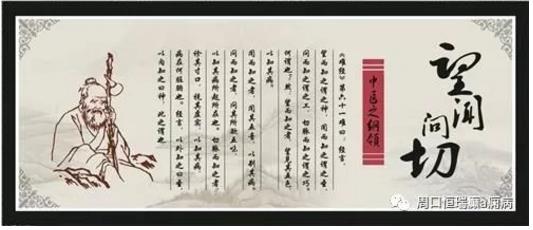 望闻问切
中医之綱領
《难经》第六十一难曰：经言，
望而知之谓之神，闻而知之谓之圣，
问而知之谓之工，切脉而知之谓之巧。
何谓也？然：望而知之者，望见其五色，
以知其病。
闻而知之者，闻其五音，以别其病。
问而知之者，问其所欲五味，
以知其病所起所在也。切脉而知之者，
诊其寸口，视其虚实，以知其病，
病在何脏腑也。经言，以外知之曰圣，
以内知之曰神，此之谓也。
周口恒瑞癫a痫病